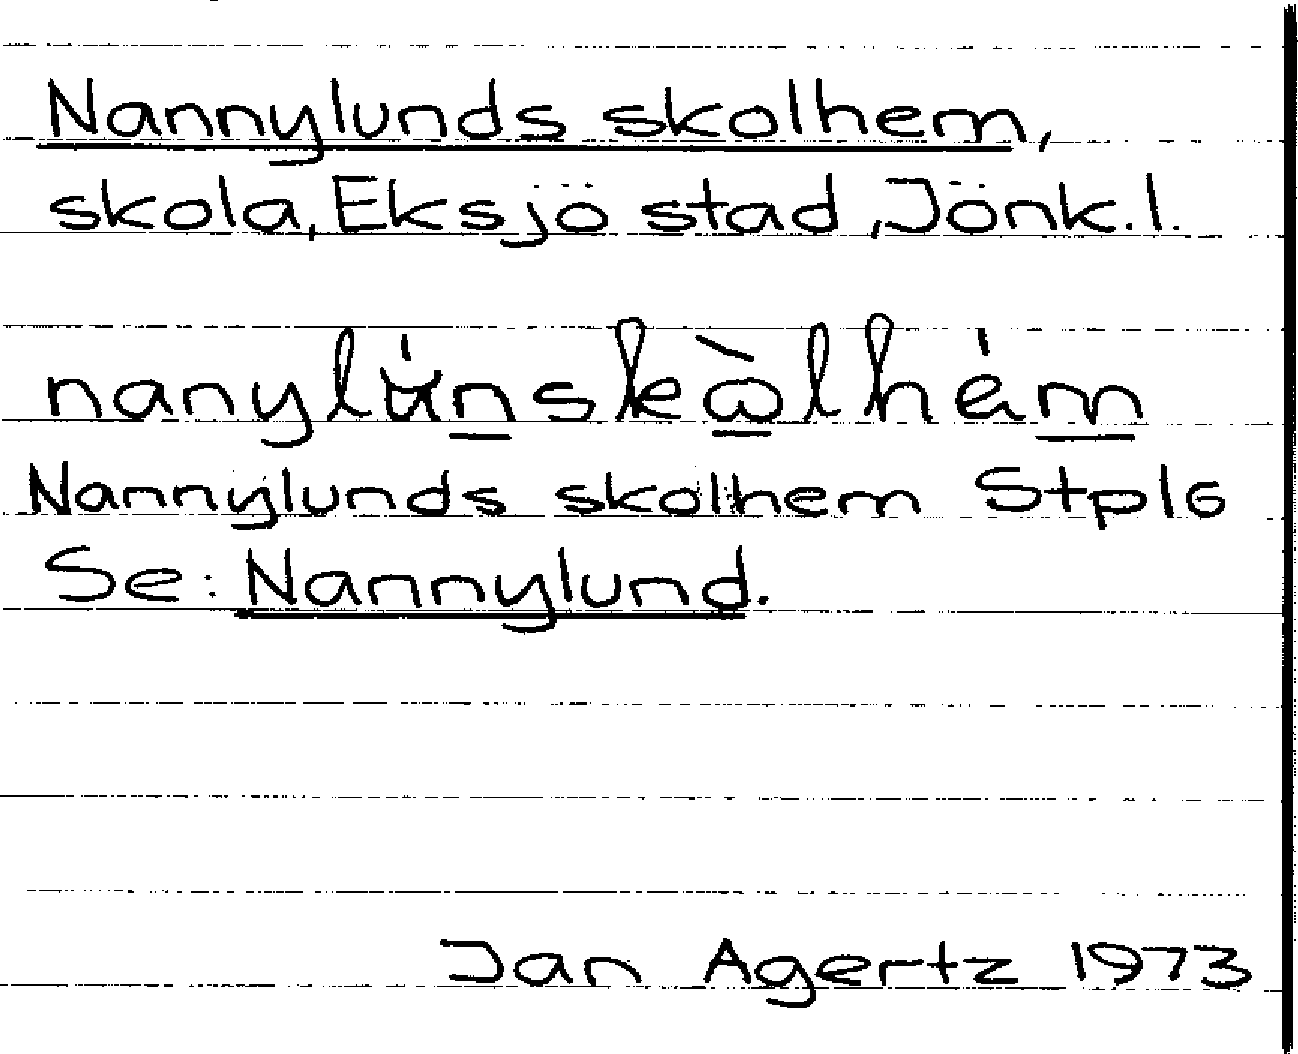 Nannylunds skolhem,
skola, Eksjö stad, Jönk.l.
nanylu̇́n̲skὼ̲lhém̲
Nannylunds skolhem Stpl6
Se: Nannylund.
Jan Agertz 1973